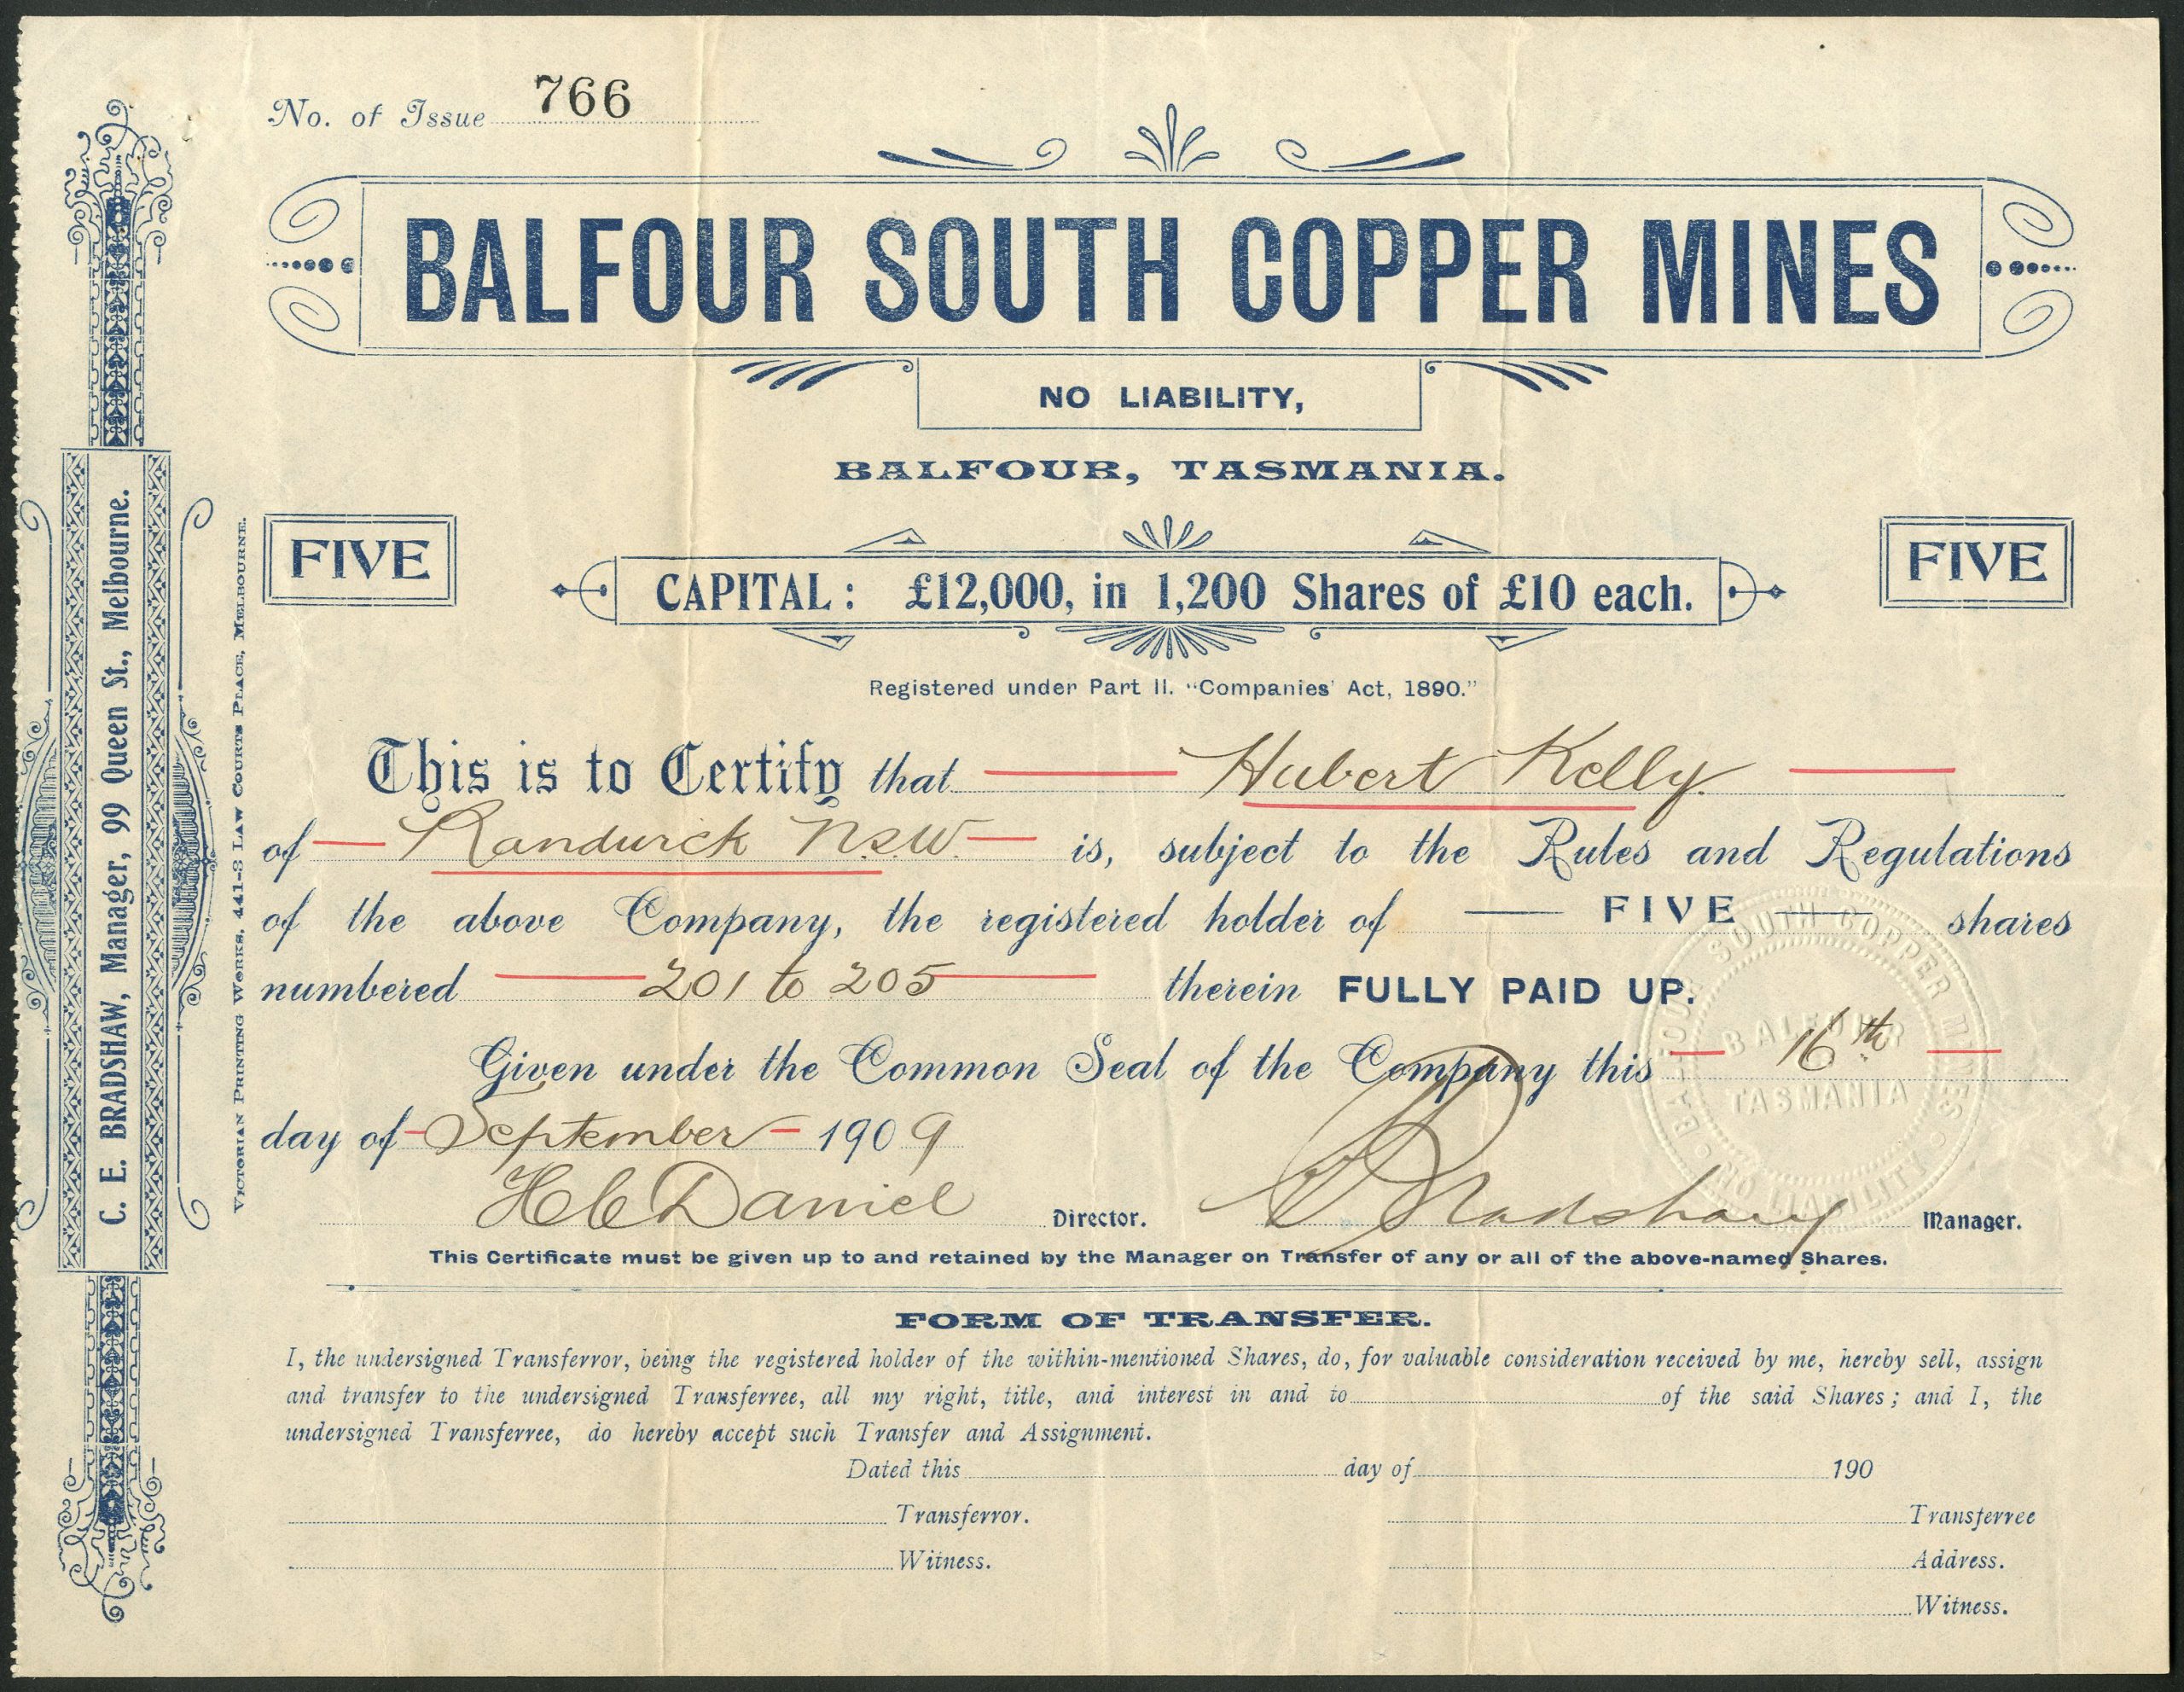 No. of Issue 766
BALFOUR SOUTH COPPER MINES
NO LIABILITY,
BALFOUR, TASMANIA.
FIVE
FIVE
CAPITAL: £12,000, in 1,200 Shares of £10 each.
Registered under Part II. "Companies' Act, 1890."
This is to Certify that Hubert Kelly.
of Randwick N.S.W. is, subject to the Rules and Regulations
of the above Company, the registered holder of FIVE shares
numbered 201 to 205 therein FULLY PAID UP.
Given under the Common Seal of the Company this 16th
day of September 1909
H C Daniel Director. C E Bradshaw Manager.
This Certificate must be given up to and retained by the Manager on Transfer of any or all of the above-named Shares.
FORM OF TRANSFER.
I, the undersigned Transferror, being the registered holder of the within-mentioned Shares, do, for valuable consideration received by me, hereby sell, assign
and transfer to the undersigned Transferree, all my right, title, and interest in and to of the said Shares; and I, the
undersigned Transferree, do hereby accept such Transfer and Assignment.
Dated this day of 190
Transferror. Transferree
Witness. Address.
Witness.
C. E. BRADSHAW, Manager, 99 Queen St., Melbourne.
VICTORIAN PRINTING WORKS, 441-3 LAW COURTS PLACE, MELBOURNE.
BALFOUR SOUTH COPPER MINES
NO LIABILITY
BALFOUR
TASMANIA